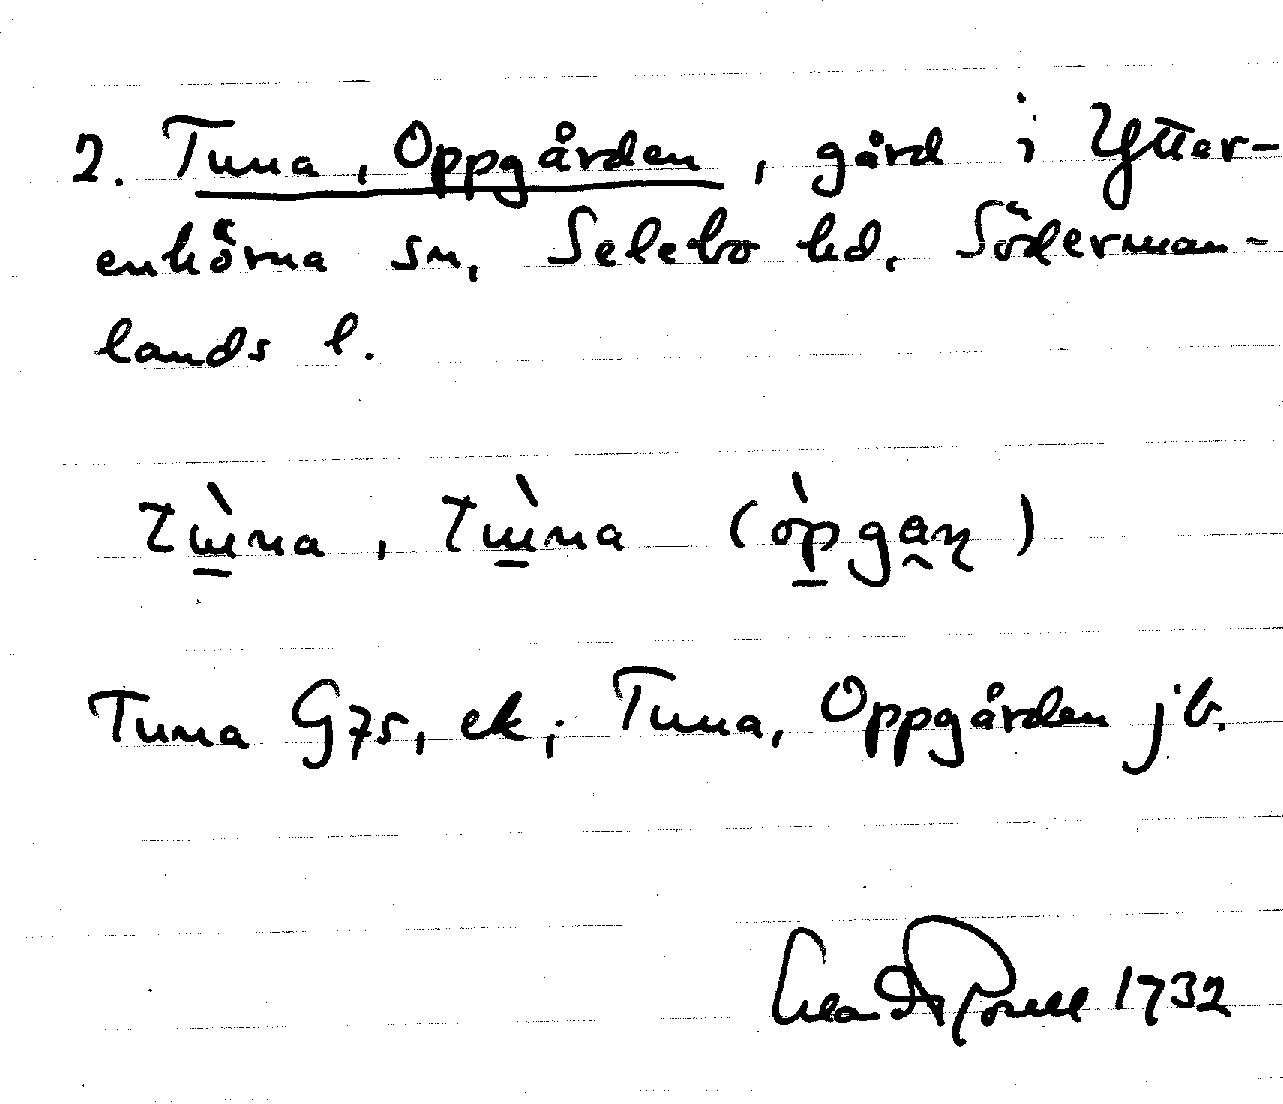 2. Tuna, Oppgården, gård i Ytter-
enhörna sn, Selebo hd, Söderman-
lands l.
(òpgan̥)
Tuna G75, ek; Tuna, Oppgården jb.
1732